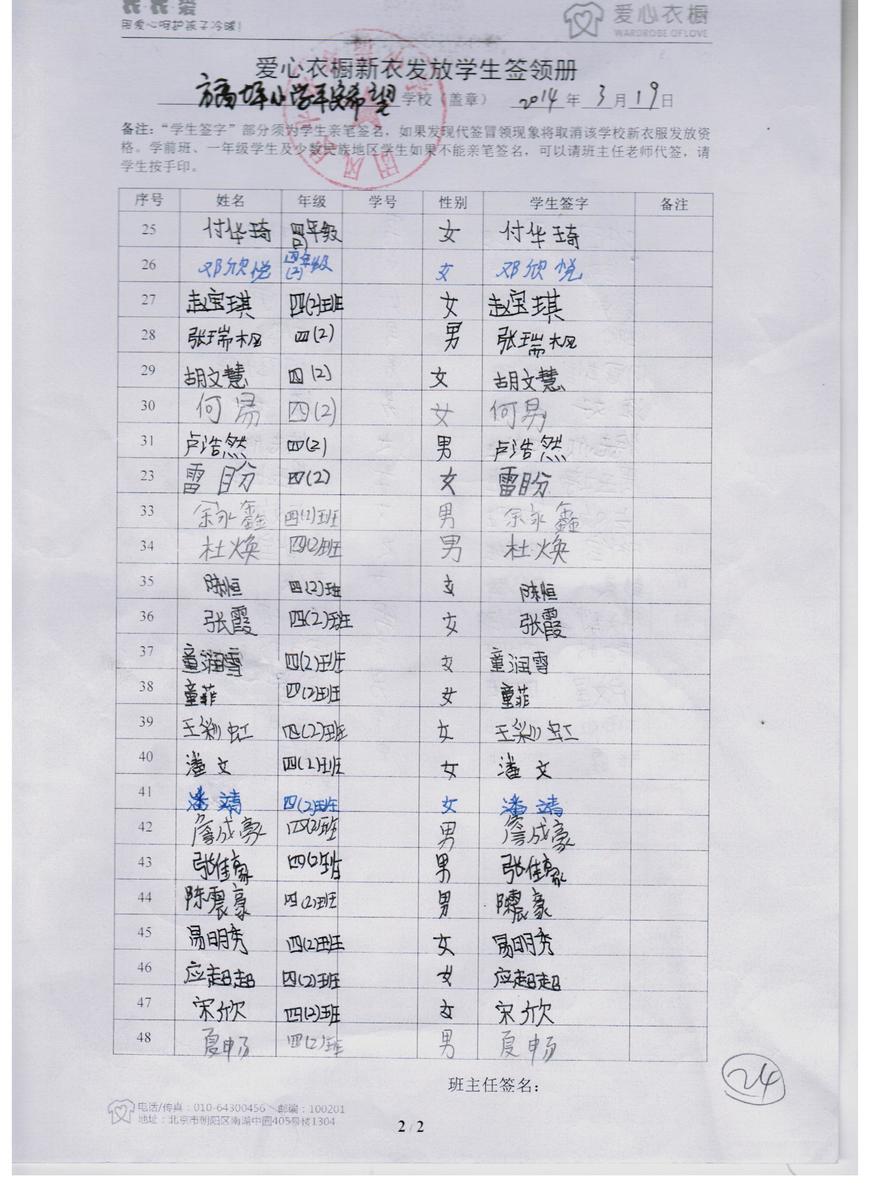 用爱心呵护孩子冷暖！
爱心衣橱
WARDROBE OF LOVE
爱心衣橱新衣发放学生签领册
方高坪小学平安希望 学校（盖章） 2014 年 3 月 19 日
备注：“学生签字”部分须为学生亲笔签名，如果发现代签冒领现象将取消该学校新衣服发放资
格。学前班、一年级学生及少数民族地区学生如果不能亲笔签名，可以请班主任老师代签，请
学生按手印。
序号 姓名 年级 学号 性别 学生签字 备注
25 付华琦 四年级(2) 女 付华琦
26 邓欣悦 四年级(2) 女 邓欣悦
27 赵宝琪 四(2)班 女 赵宝琪
28 张瑞 四(2) 男 张瑞
29 胡文慧 四(2) 女 胡文慧
30 何易 四(2) 女 何易
31 卢浩然 四(2) 男 卢浩然
23 雷盼 四(2) 女 雷盼
33 余永鑫 四(2)班 男 余永鑫
34 杜焕 四(2)班 男 杜焕
35 陈恒 四(2)班 女 陈恒
36 张霞 四(2)班 女 张霞
37 童润雪 四(2)班 女 童润雪
38 童菲 四(2)班 女 童菲
39 王彩虹 四(2)班 女 王彩虹
40 潘文 四(2)班 女 潘文
41 潘靖 四(2)班 女 潘靖
42 詹成豪 四(2)班 男 詹成豪
43 张佳豪 四(2)班 男 张佳豪
44 陈震豪 四(2)班 男 陈震豪
45 易明秀 四(2)班 女 易明秀
46 应超超 四(2)班 女 应超超
47 宋欣 四(2)班 女 宋欣
48 夏畅 四(2)班 男 夏畅
班主任签名：
24
电话/传真：010-64300456 邮编：100201
地址：北京市朝阳区南湖中园405号楼1304
2 / 2